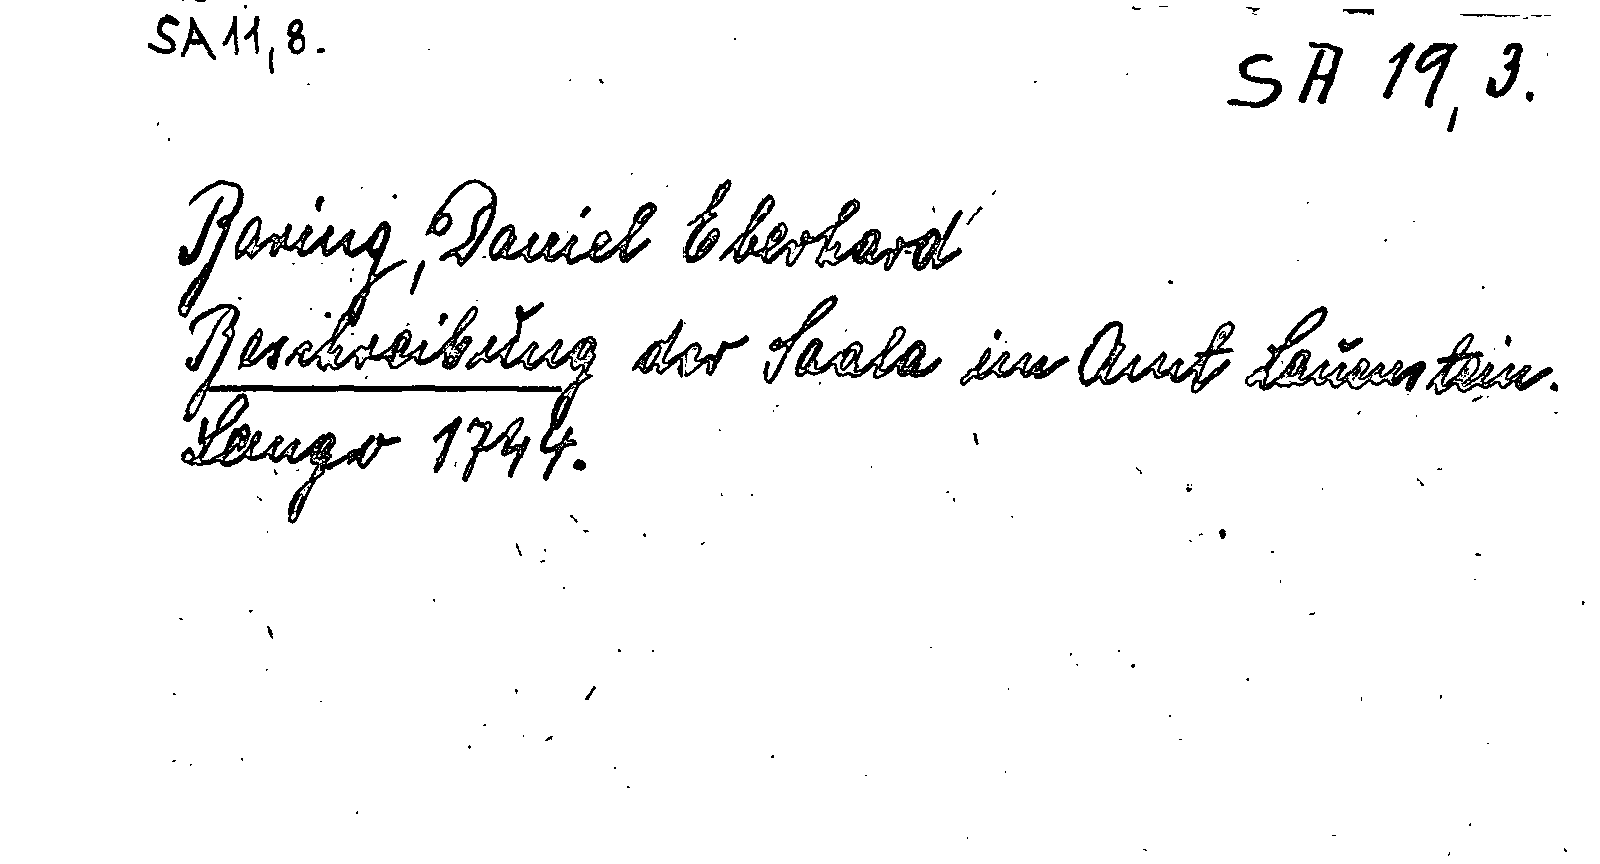 SA 11,8.
SA 19,3.
Baring, Daniel Eberhard
Beschreibung der Saala im Amt Lauenstein.
Lemgo 1744.